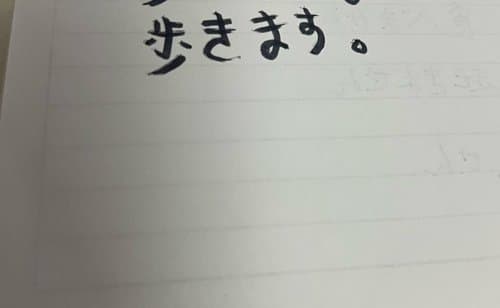 歩きます。